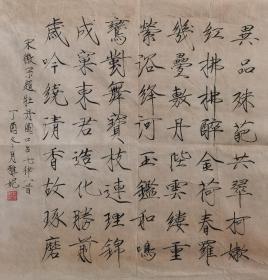 異品殊葩共翠柯嫩
紅拂拂醉金荷春羅
幾疊敷丹陛雲縷重
縈浴絳河玉鑑和鳴
鸞對舞寶枝連理錦
成窠東君造化勝前
歲吟繞清香故琢磨
宋徽宗題牡丹圖七律
丁酉月